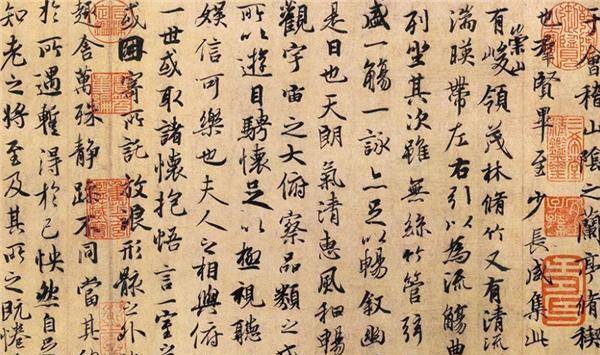 于會稽山陰之蘭亭脩稧
也羣賢畢至少長咸集此
有崇山峻領茂林脩竹又有清流
湍暎帶左右引以為流觴曲
列坐其次雖無絲竹管弦
盛一觴一詠亦足以暢敘幽
是日也天朗氣清惠風和暢
觀宇宙之大俯察品類之
所以遊目騁懷足以極視聽
娛信可樂也夫人之相與俯
一世或取諸懷抱悟言一室之
或因寄所託放浪形骸之外
趣舍萬殊靜躁不同當其
於所遇蹔得於己怏然自足
知老之將至及其所之既惓